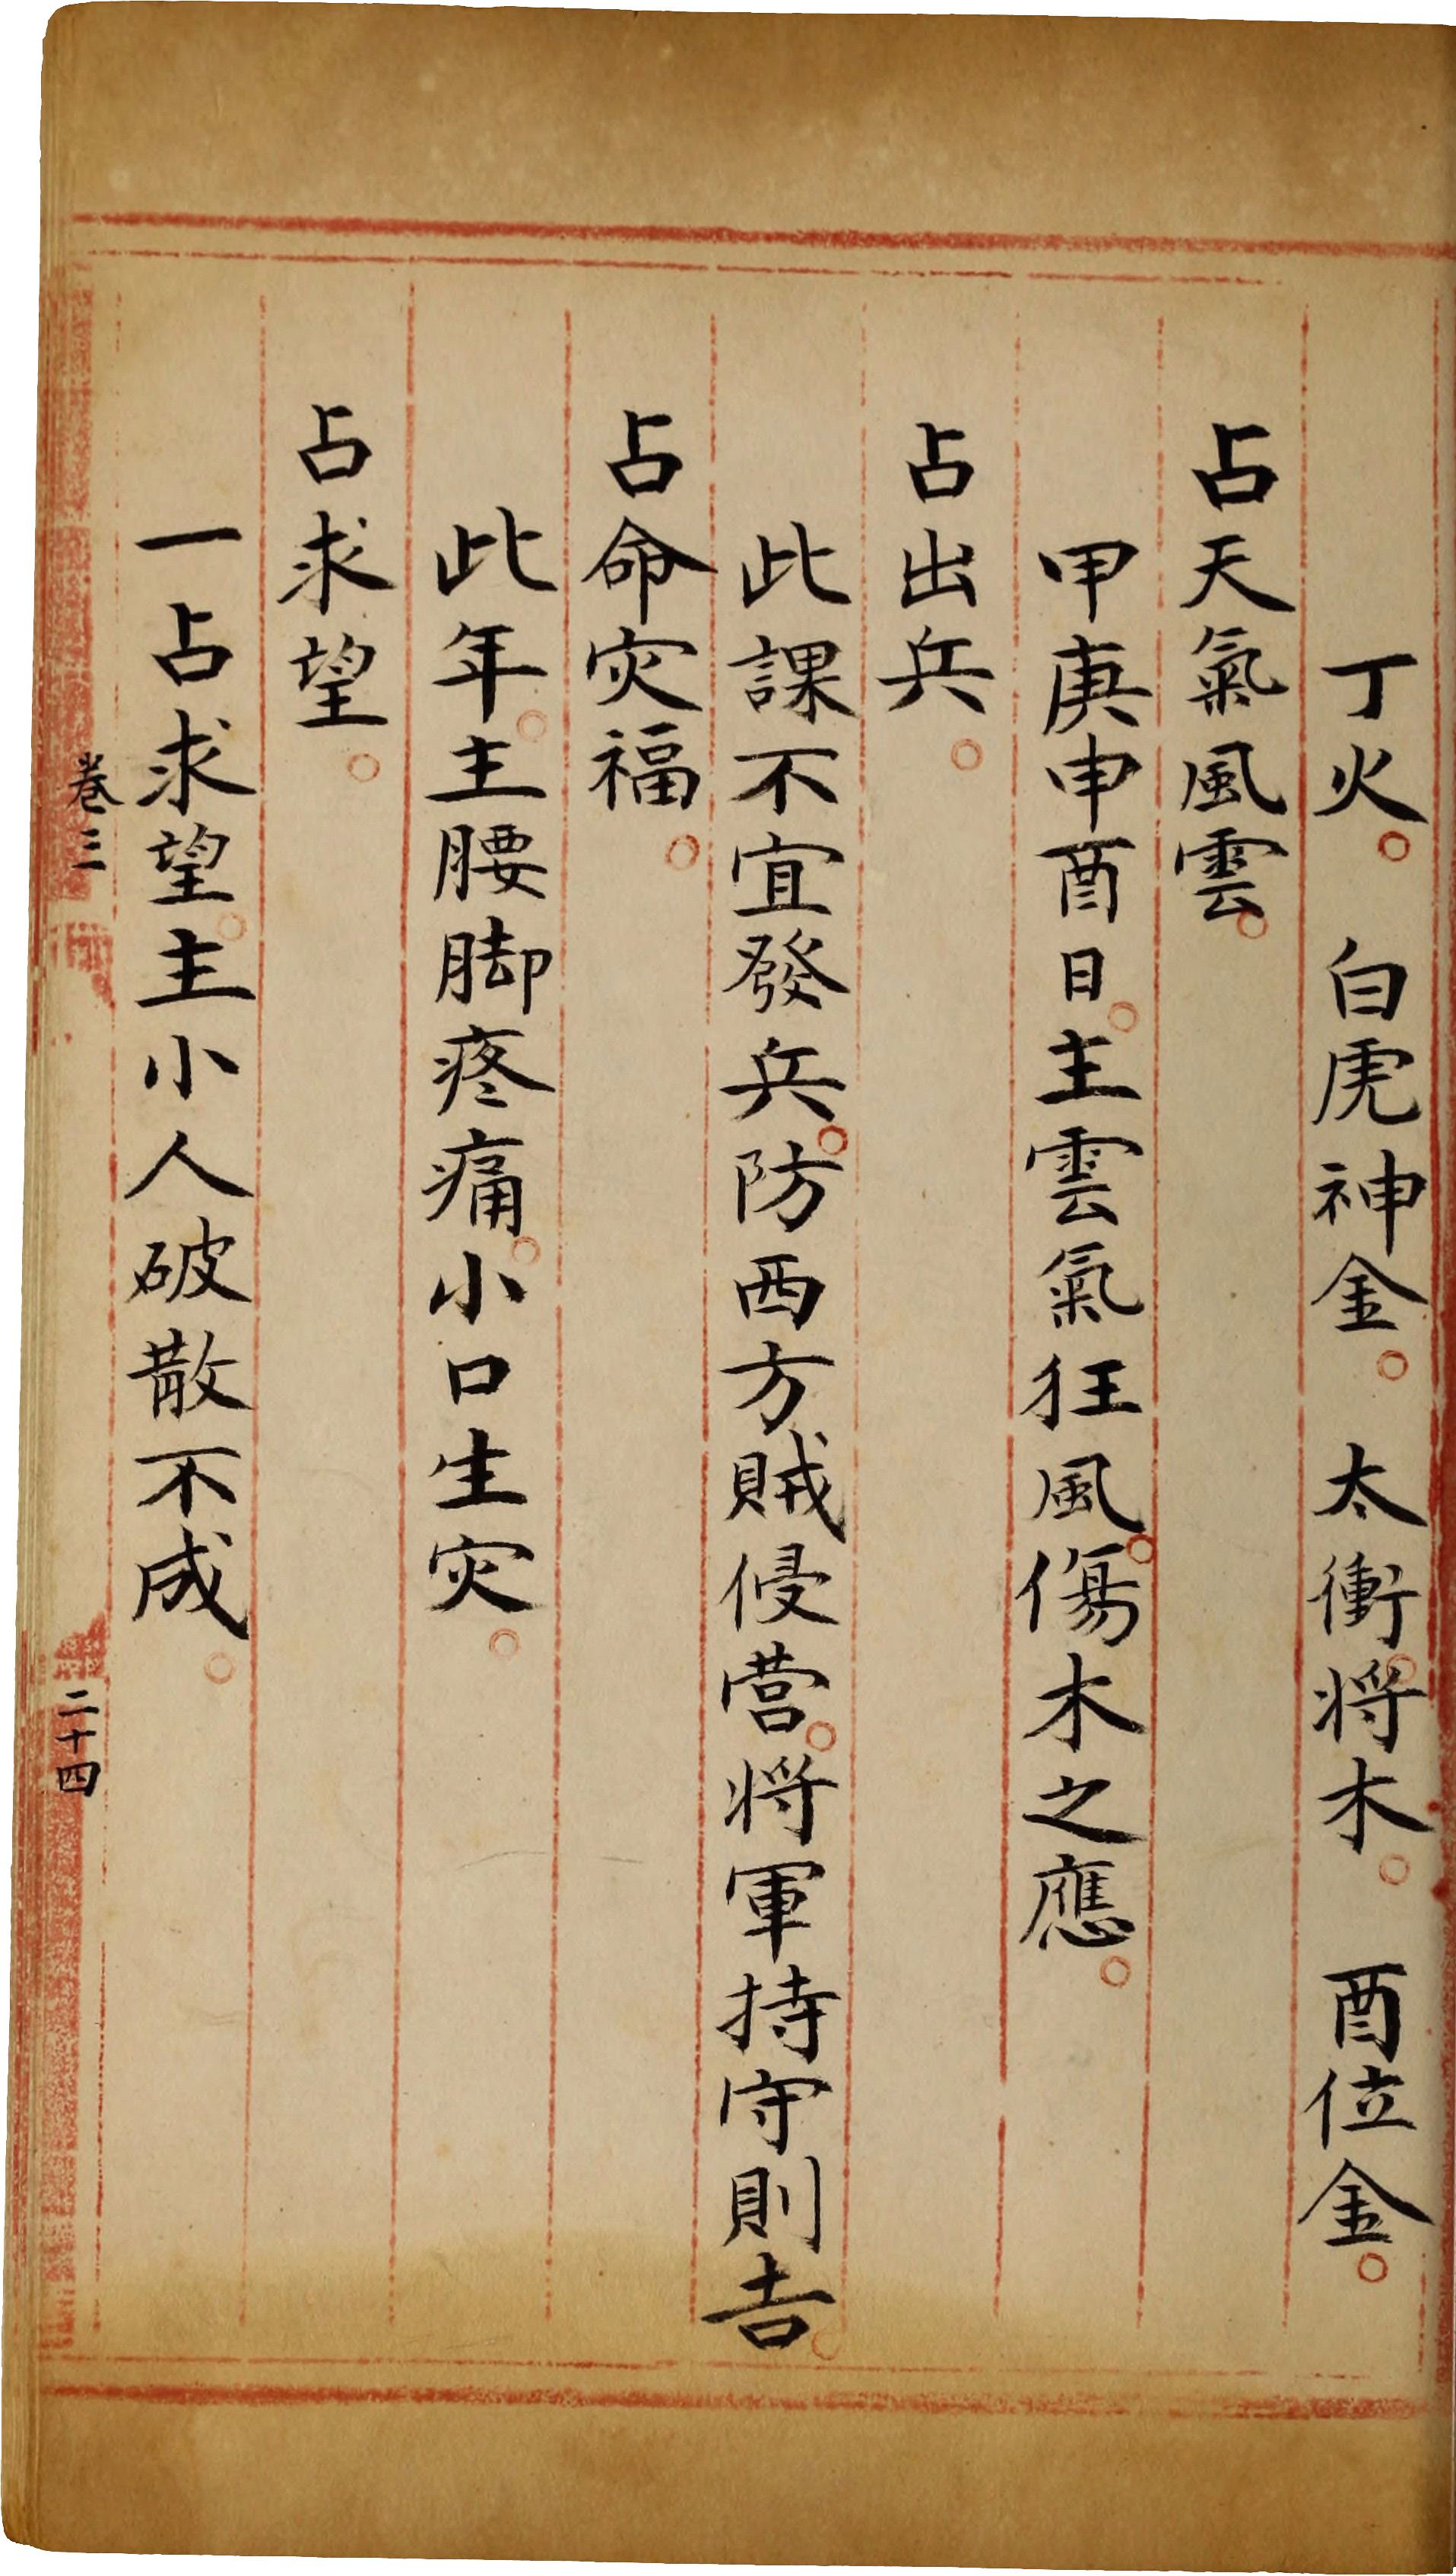 丁火。白虎神金。太衝将木。酉位金。
占天氣風雲。
甲庚申酉日。主雲氣狂風。傷木之應。
占出兵。
此課不宜發兵。防西方賊侵营。将軍持守則吉。
占命灾福。
此年。主腰脚疼痛。小口生灾。
占求望。
一占求望。主小人破散不成。
卷三
二十四